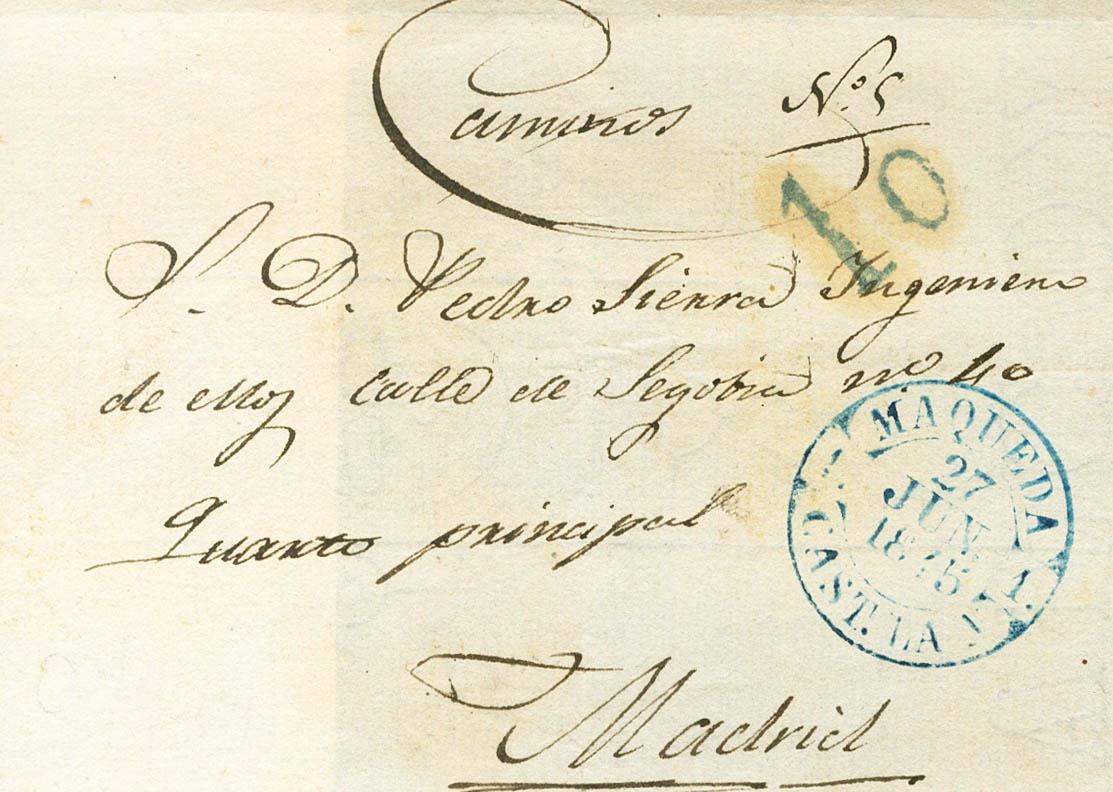 Caminos Nº 5
10
S. D. Pedro Sierra Ingeniero
de calle de Segobia nº 40
Quarto principal
MAQUEDA
27
JUN
1845
CAST. LA N.
1.
Madrid